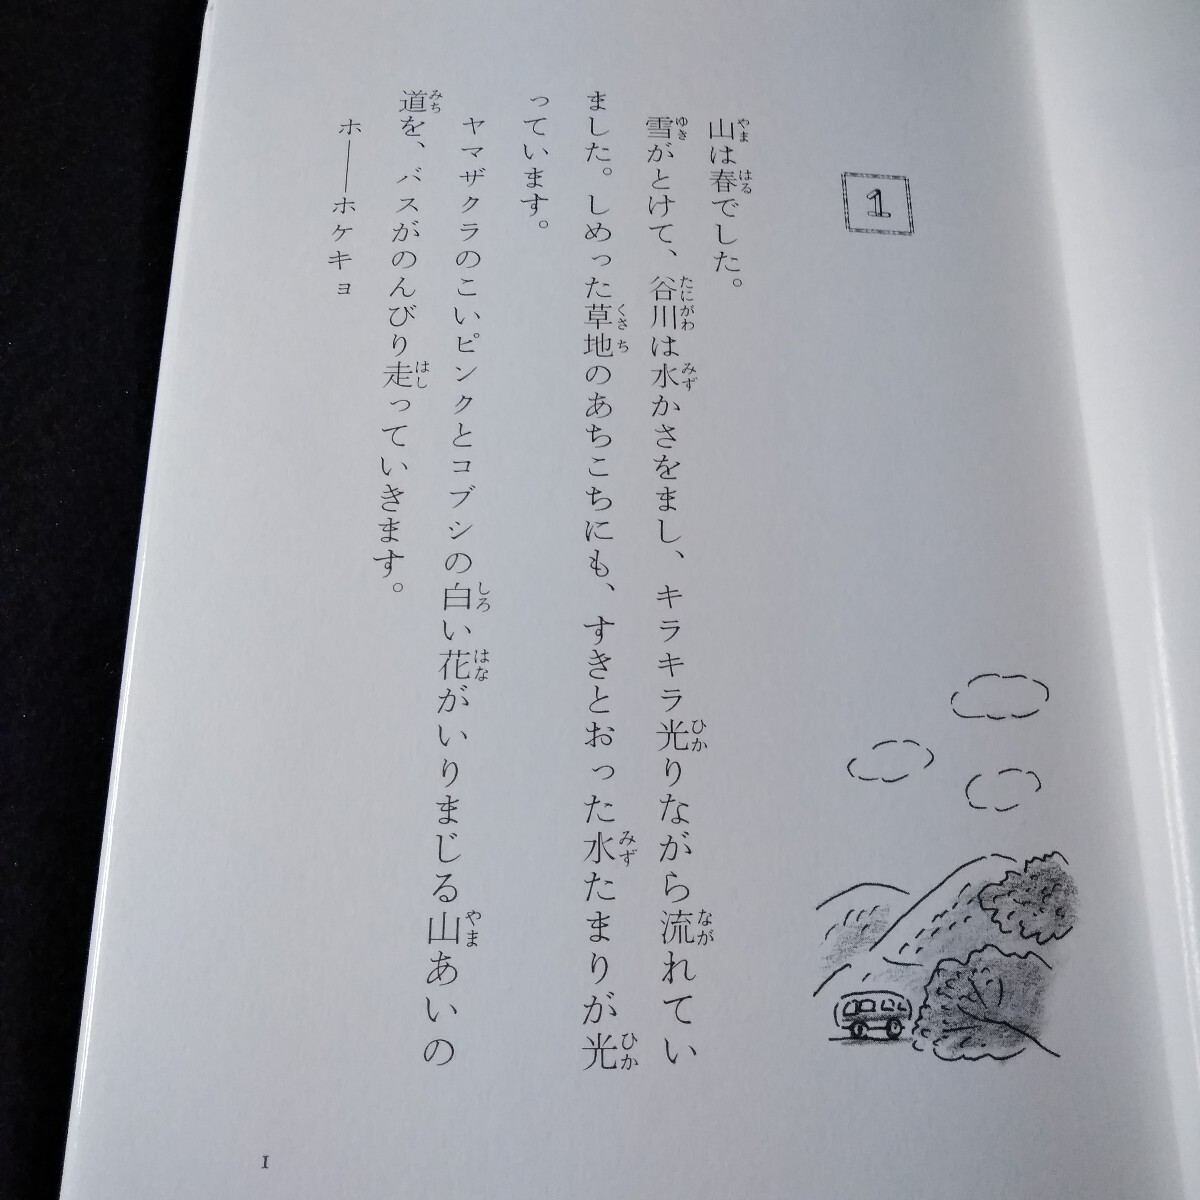 1
山は春でした。
雪がとけて、谷川は水かさをまし、キラキラ光りながら流れてい
ました。しめった草地のあちこちにも、すきとおった水たまりが光
っています。
ヤマザクラのこいピンクとコブシの白い花がいりまじる山あいの
道を、バスがのんびり走っていきます。
ホ――ホケキョ
1